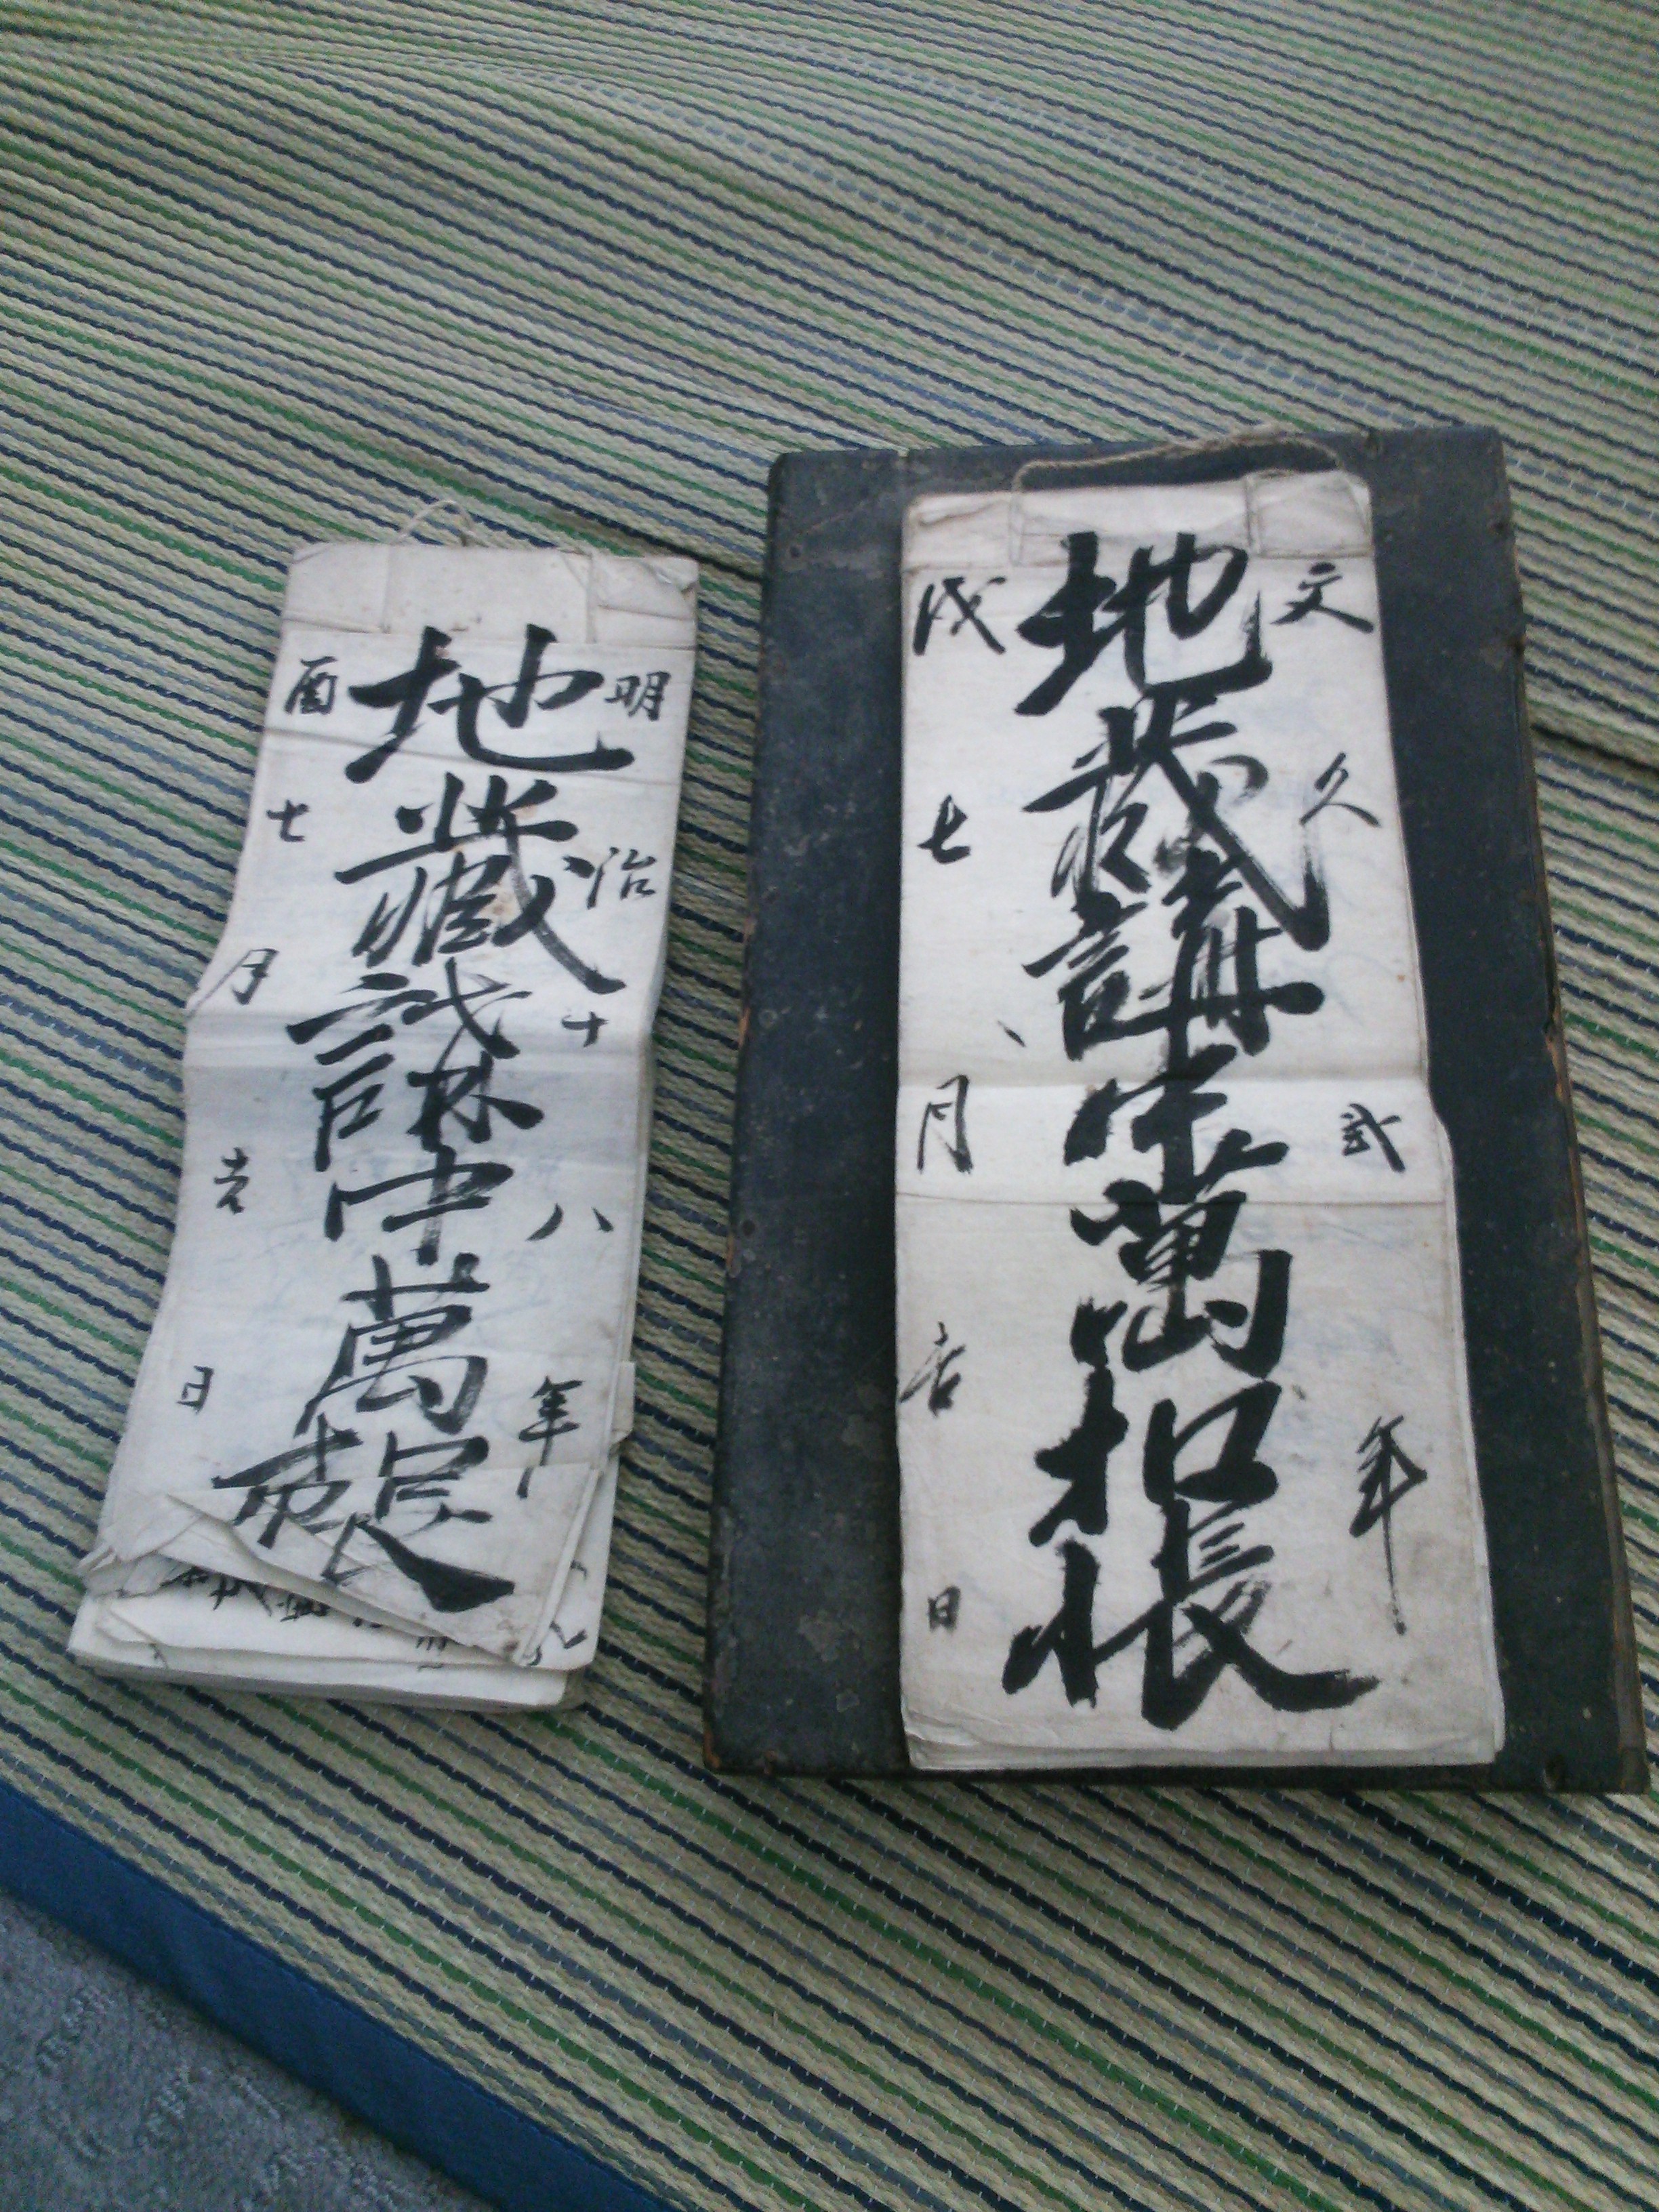 文久弐年
地蔵講中萬扣帳
戌七月吉日
明治十八年
地藏講中萬帳
酉七月吉日